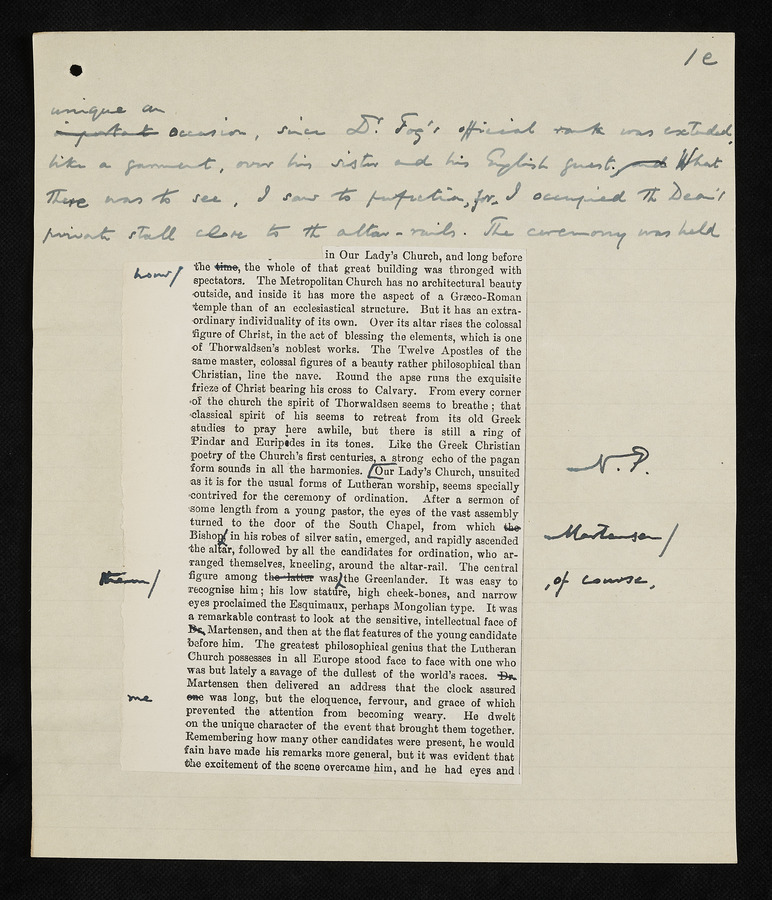 1e
unique an
important occasion, since Dr. Fog's official rank was extended,
like a garment, over his sister and his English guest. and What
there was to see, I saw to perfection, for I occupied the Dean's
private stall close to the altar-rails. The ceremony was held
in Our Lady's Church, and long before
hour/
the time, the whole of that great building was thronged with
spectators. The Metropolitan Church has no architectural beauty
outside, and inside it has more the aspect of a Græco-Roman
temple than of an ecclesiastical structure. But it has an extra-
ordinary individuality of its own. Over its altar rises the colossal
figure of Christ, in the act of blessing the elements, which is one
of Thorwaldsen's noblest works. The Twelve Apostles of the
same master, colossal figures of a beauty rather philosophical than
Christian, line the nave. Round the apse runs the exquisite
frieze of Christ bearing his cross to Calvary. From every corner
of the church the spirit of Thorwaldsen seems to breathe; that
classical spirit of his seems to retreat from its old Greek
studies to pray here awhile, but there is still a ring of
Pindar and Euripides in its tones. Like the Greek Christian
poetry of the Church's first centuries, a strong echo of the pagan
form sounds in all the harmonies. [Our Lady's Church, unsuited
N.P.
as it is for the usual forms of Lutheran worship, seems specially
contrived for the ceremony of ordination. After a sermon of
some length from a young pastor, the eyes of the vast assembly
turned to the door of the South Chapel, from which the
Bishop/ in his robes of silver satin, emerged, and rapidly ascended
Martensen/
the altar, followed by all the candidates for ordination, who ar-
ranged themselves, kneeling, around the altar-rail. The central
figure among the latter was the Greenlander. It was easy to
them/
, of course,
recognise him; his low stature, high cheek-bones, and narrow
eyes proclaimed the Esquimaux, perhaps Mongolian type. It was
a remarkable contrast to look at the sensitive, intellectual face of
Dr. Martensen, and then at the flat features of the young candidate
before him. The greatest philosophical genius that the Lutheran
Church possesses in all Europe stood face to face with one who
was but lately a savage of the dullest of the world's races. Dr.
Martensen then delivered an address that the clock assured
me
one was long, but the eloquence, fervour, and grace of which
prevented the attention from becoming weary. He dwelt
on the unique character of the event that brought them together.
Remembering how many other candidates were present, he would
fain have made his remarks more general, but it was evident that
the excitement of the scene overcame him, and he had eyes and